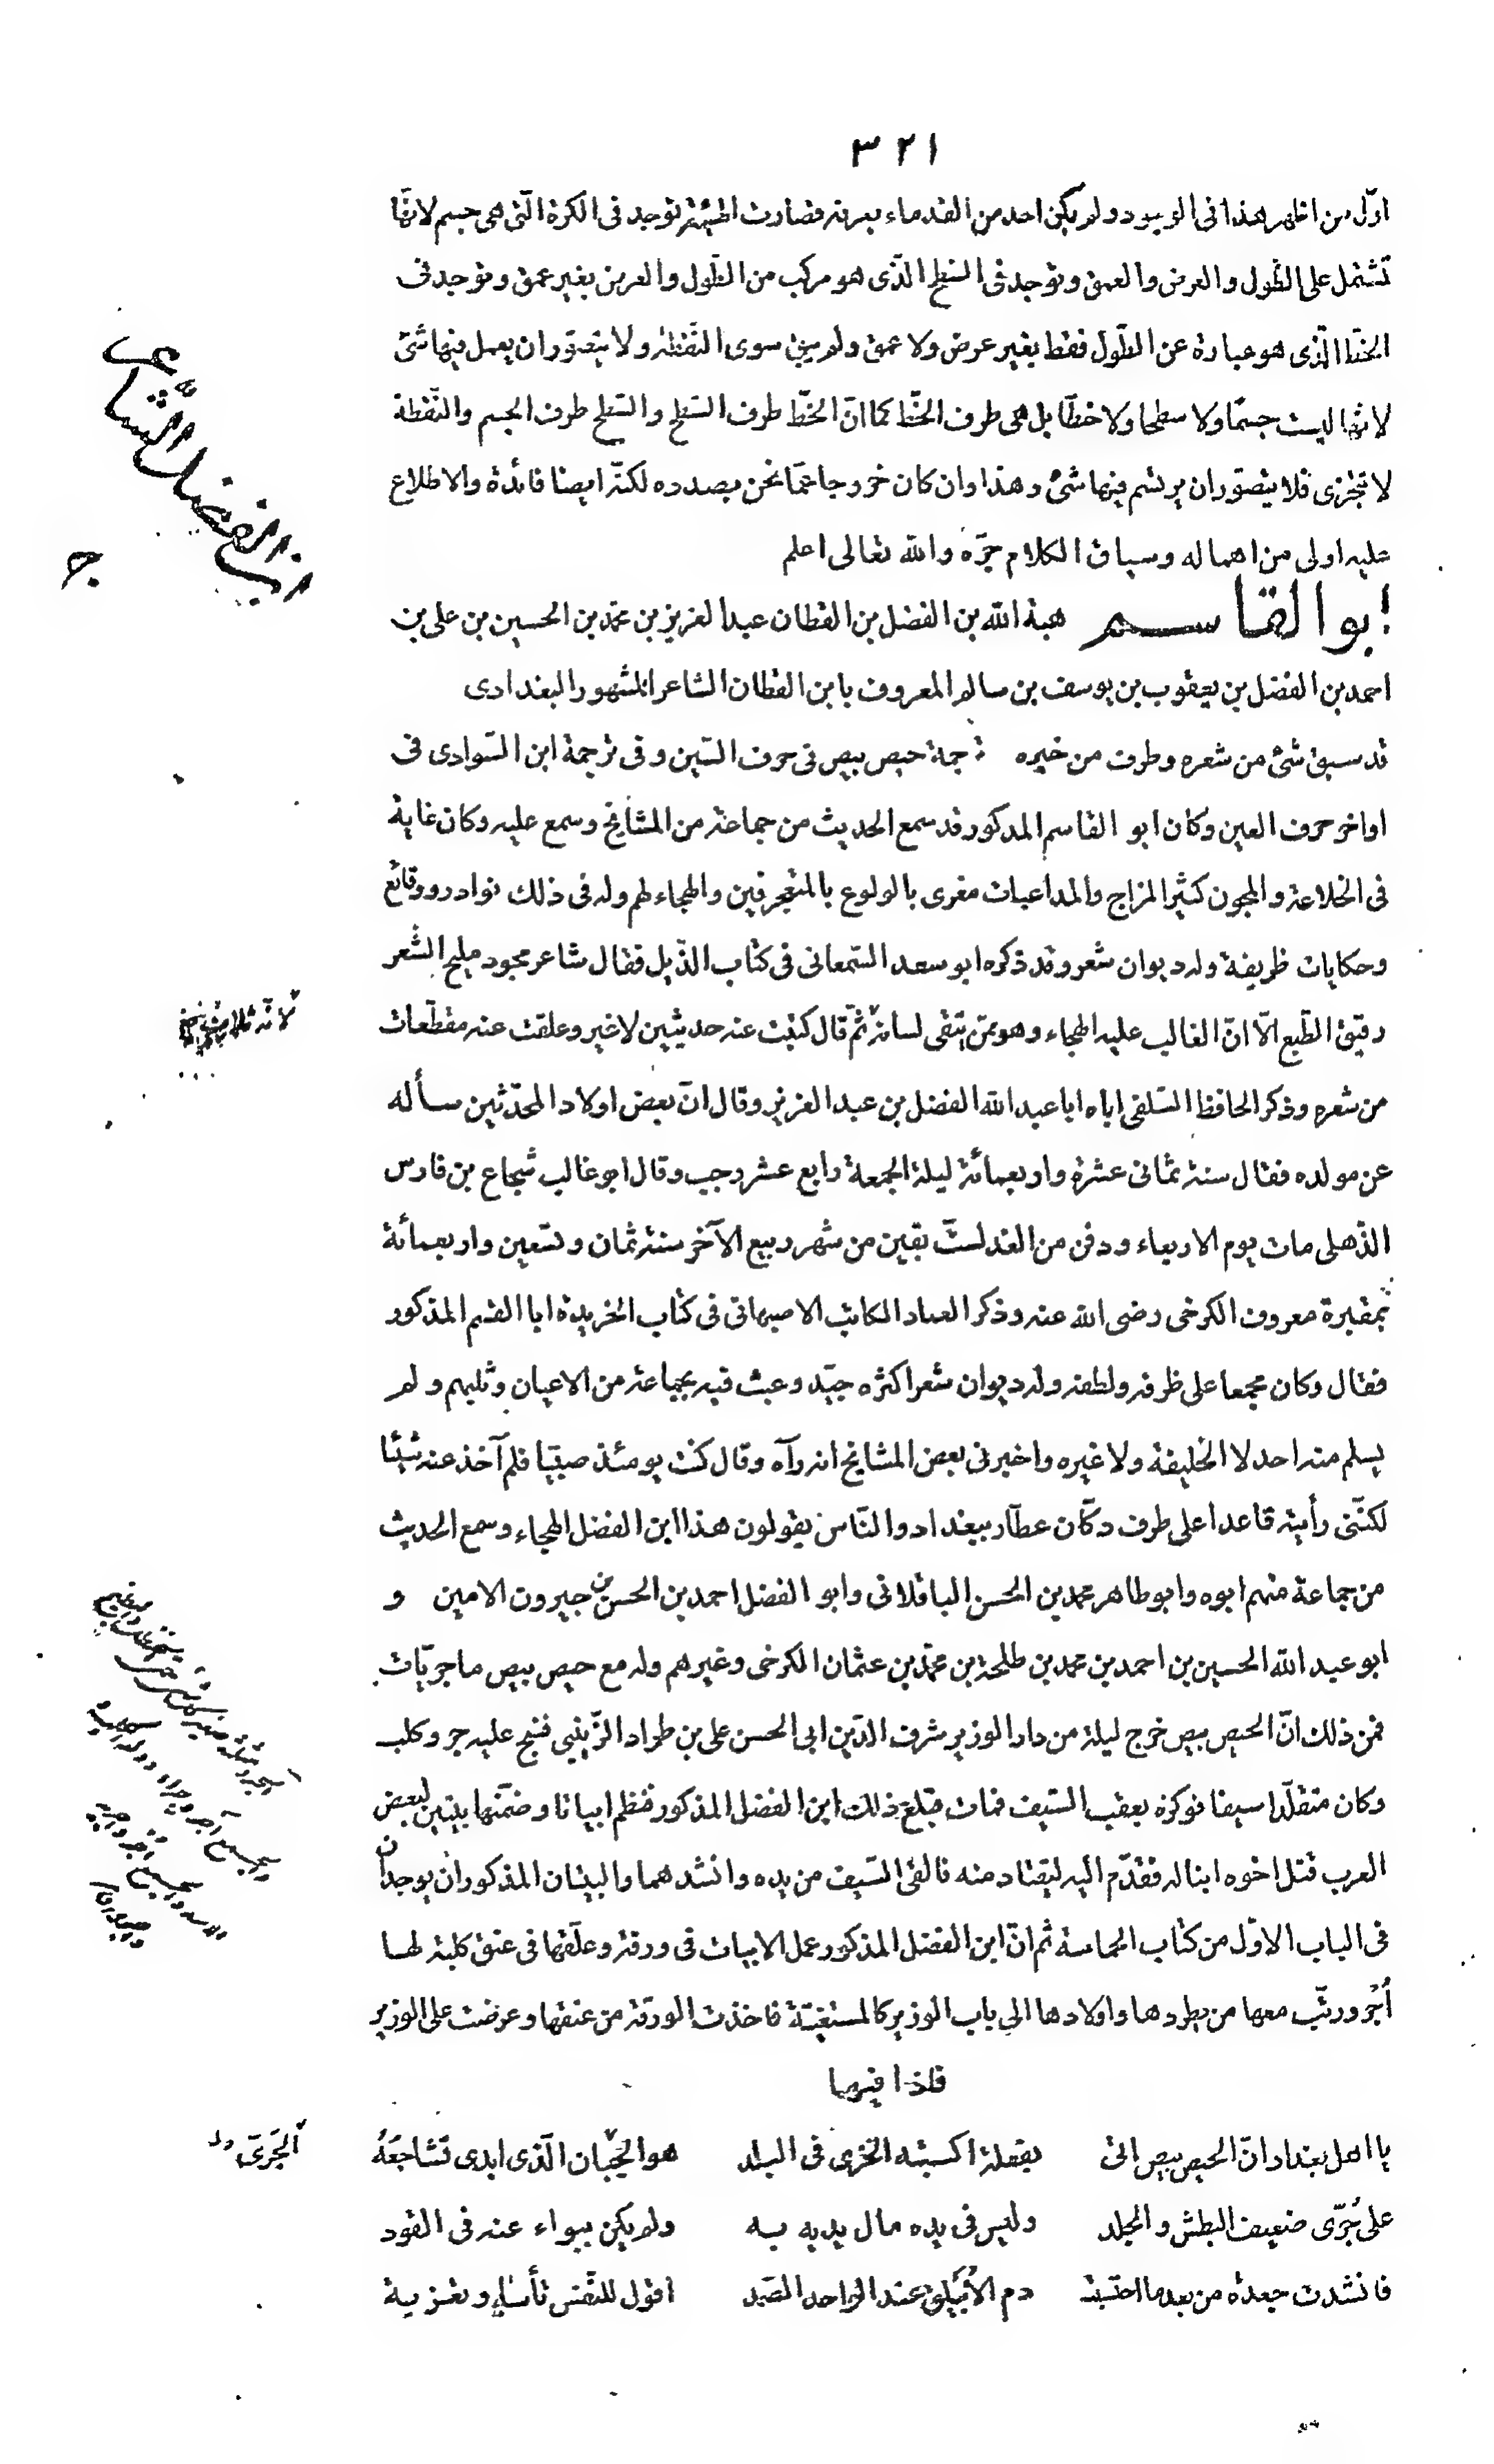 ٣٢١
اوّل من اظهر هذا فى الوجود ولم يكن احد من القدماء يعرفه فصارت الهيئة توجد فى الكرة الّتى هى جسم لانّها
تشتمل على الطّول والعرض والعمق وتوجد فى السّطح الّذى هو مركب من الطّول والعرض بغير عمق وتوجد فى
الخطّ الّذى هو عبارة عن الطّول فقط بغير عرض ولا عمق ولم يبق سوى النّقطة ولا يتصوّر ان يعمل فيها شئ
لانّها ليست جسمًا ولا سطحا ولا خطّا بل هى طرف الخطّ كما انّ الخطّ طرف السّطح والسّطح طرف الجسم والنّقطة
لا تتجزى فلا يتصوّر ان يرتسم فيها شئ وهذا وان كان خروجا عمّا نحن بصدده لكنّه ايضا فائدة والاطلاع
عليه اولى من اهماله وسياق الكلام جرّه والله تعالى اعلم
ابو القاسم هبة الله بن الفضل بن القطان عبد العزيز بن محمّد بن الحسين بن على بن
احمد بن الفضل بن يعقوب بن يوسف بن سالم المعروف بابن القطان الشاعر المشهور البغدادى
قد سبق شئ من شعره وطرف من خبره ترجمة حيص بيص فى حرف السّين وفى ترجمة ابن السّوادى فى
اواخر حرف العين وكان ابو القاسم المذكور قد سمع الحديث من جماعة من المشايخ وسمع عليه وكان غاية
فى الخلاعة والمجون كثير المزاح والمداعبات مغرى بالولوع بالمتعجرفين والهجاء لهم وله فى ذلك نوادر ووقائع
وحكايات ظريفة وله ديوان شعر وقد ذكره ابو سعد السّمعانى فى كتاب الذّيل فقال شاعر مجود مليح الشّعر
رقيق الطّبع الّا انّ الغالب عليه الهجاء وهو ممّن يتّقى لسانه ثمّ قال كتبت عنه حديثين لا غير وعلقت عنه مقطّعات
من شعره وذكر الحافظ السّلفى اباه ابا عبد الله الفضل بن عبد العزيز وقال انّ بعض اولاد المحدّثين سأله
عن مولده فقال سنة ثمانى عشرة واربعمائة ليلة الجمعة رابع عشر رجب وقال ابو غالب شجاع بن فارس
الذّهلى مات يوم الاربعاء ودفن من الغد لستّ بقين من شهر ربيع الآخر سنة ثمان وتسعين واربعمائة
بمقبرة معروف الكرخى رضى الله عنه وذكر العماد الكاتب الاصبهانى فى كتاب الخريدة ابا القسم المذكور
فقال وكان مجمعا على ظرفه ولطفه وله ديوان شعر اكثره جيّد وعبث فيه بجماعة من الاعيان وثلبهم ولم
يسلم منه احد لا الخليفة ولا غيره واخبرنى بعض المشايخ انه رآه وقال كنت يومئذ صبيّا فلم آخذ عنه شيئا
لكنّنى رأيته قاعدا على طرف دكّان عطّار ببغداد والنّاس يقولون هذا ابن الفضل الهجاء وسمع الحديث
من جماعة منهم ابوه وابو طاهر محمد بن الحسن الباقلانى وابو الفضل احمد بن الحسن بن خيرون الامين و
ابو عبد الله الحسين بن احمد بن محمد بن طلحة بن محمّد بن عثمان الكرخى وغيرهم وله مع حيص بيص ماجريّات
فمن ذلك انّ الحيص بيص خرج ليلة من دار الوزير شرف الدّين ابى الحسن على بن طراد الزّينبى فنبح عليه جرو كلب
وكان متقلّدا سيفا فوكزه بعقب السّيف فمات فبلغ ذلك ابن الفضل المذكور فنظم ابياتا وضمّنها بيتين لبعض
العرب قتل اخوه ابنا له فقدّم اليه ليقتاد منه فالقى السّيف من يده وانشدهما والبيتان المذكوران يوجدان
فى الباب الاوّل من كتاب الحماسة ثم انّ ابن الفضل المذكور عمل الابيات فى ورقة وعلّقها فى عنق كلبة لها
أجر ورتّب معها من يطردها واولادها الى باب الوزير كالمستغيثة فاخذت الورقة من عنقها وعرضت على الوزير
فاذا فيها
يا اهل بغداد انّ الحيص بيص اتى بفعلة اكسبته الخزى فى البلد هو الجبان الّذى ابدى تشاجعه
على جُرَىّ ضعيف البطش والجلد وليس فى يده مال يديه به ولم يكن ببواء عنه فى القود
فانشدت جعدة من بعد ما احتسبت دم الابيلق عند الواحد الصّمد اقول للنّفس تأساء وتعزية
ابن الفضل الشاعر
ج